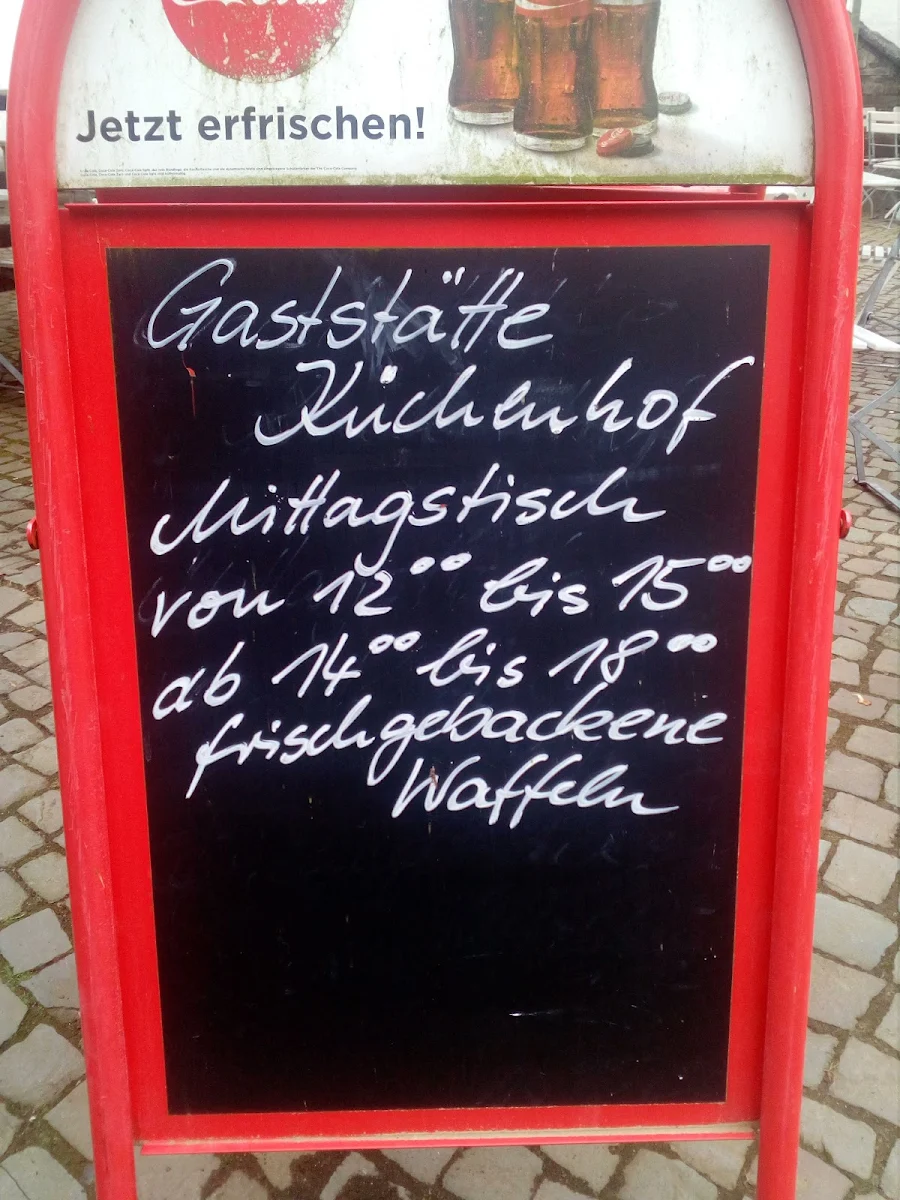 Jetzt erfrischen!
Gaststätte
Küchenhof
Mittagstisch
von 12⁰⁰ bis 15⁰⁰
ab 14⁰⁰ bis 18⁰⁰
frischgebackene
Waffeln